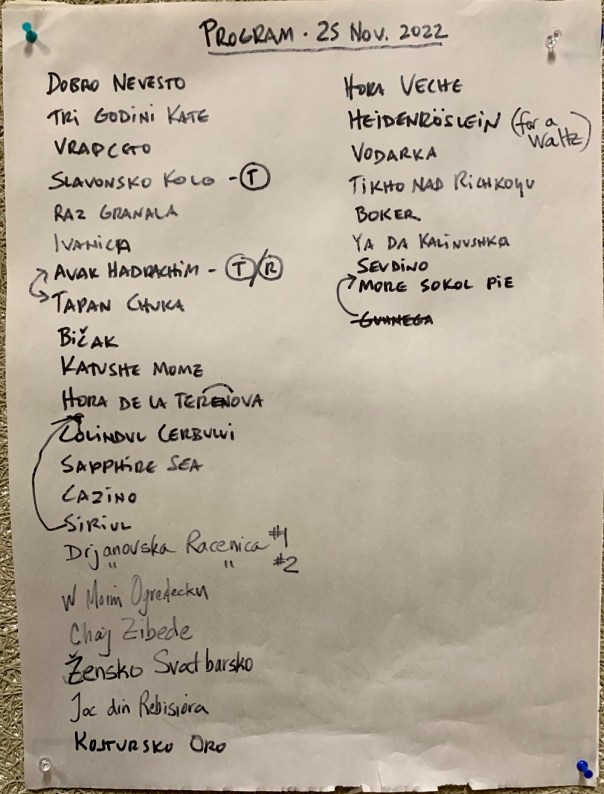 PROGRAM · 25 NOV. 2022
DOBRO NEVESTO
TRI GODINI KATE
VRAPCETO
SLAVONSKO KOLO - T
RAZ GRANALA
IVANICA
AVAK HADRACHIM - T/R
TAPAN CHUKA
BIČAK
KATUSHE MOME
HORA DE LA TERENOVA
COLINDUL CERBULUI
SAPPHIRE SEA
CAZINO
SIRIUL
Drjanovska Racenica #1
" " #2
W Moim Ogredecku
Chaj Zibede
Žensko Svatbarsko
Joc din Rebisiora
KOSTURSKO ORO
HORA VECHE
HEIDENRÖSLEIN (for a
waltz)
VODARKA
TIKHO NAD RICHKOYU
BOKER
YA DA KALINUSHKA
SEVDINO
MORE SOKOL PIE
GUHNEGA